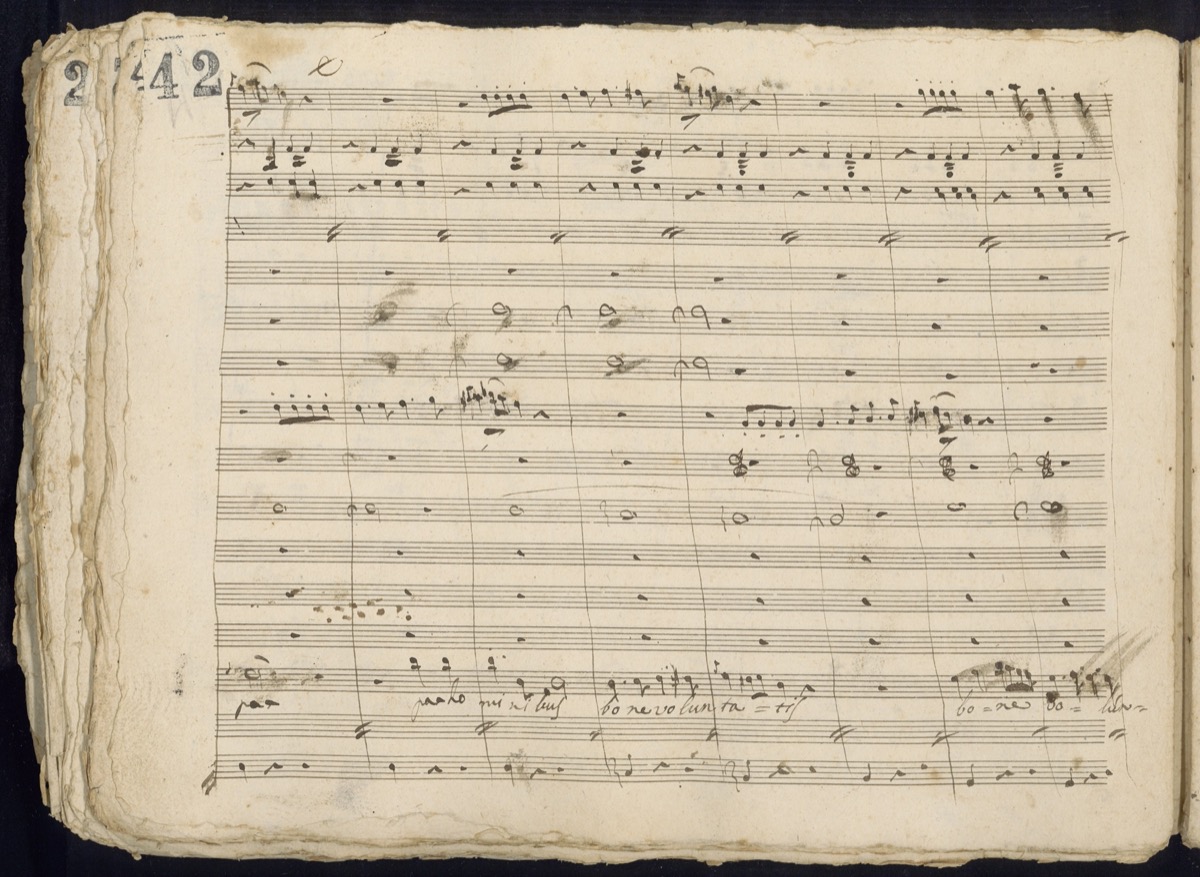 2 42
pax pax ho mi ni bus bo ne vo lun ta = tis bo = ne vo = lun =